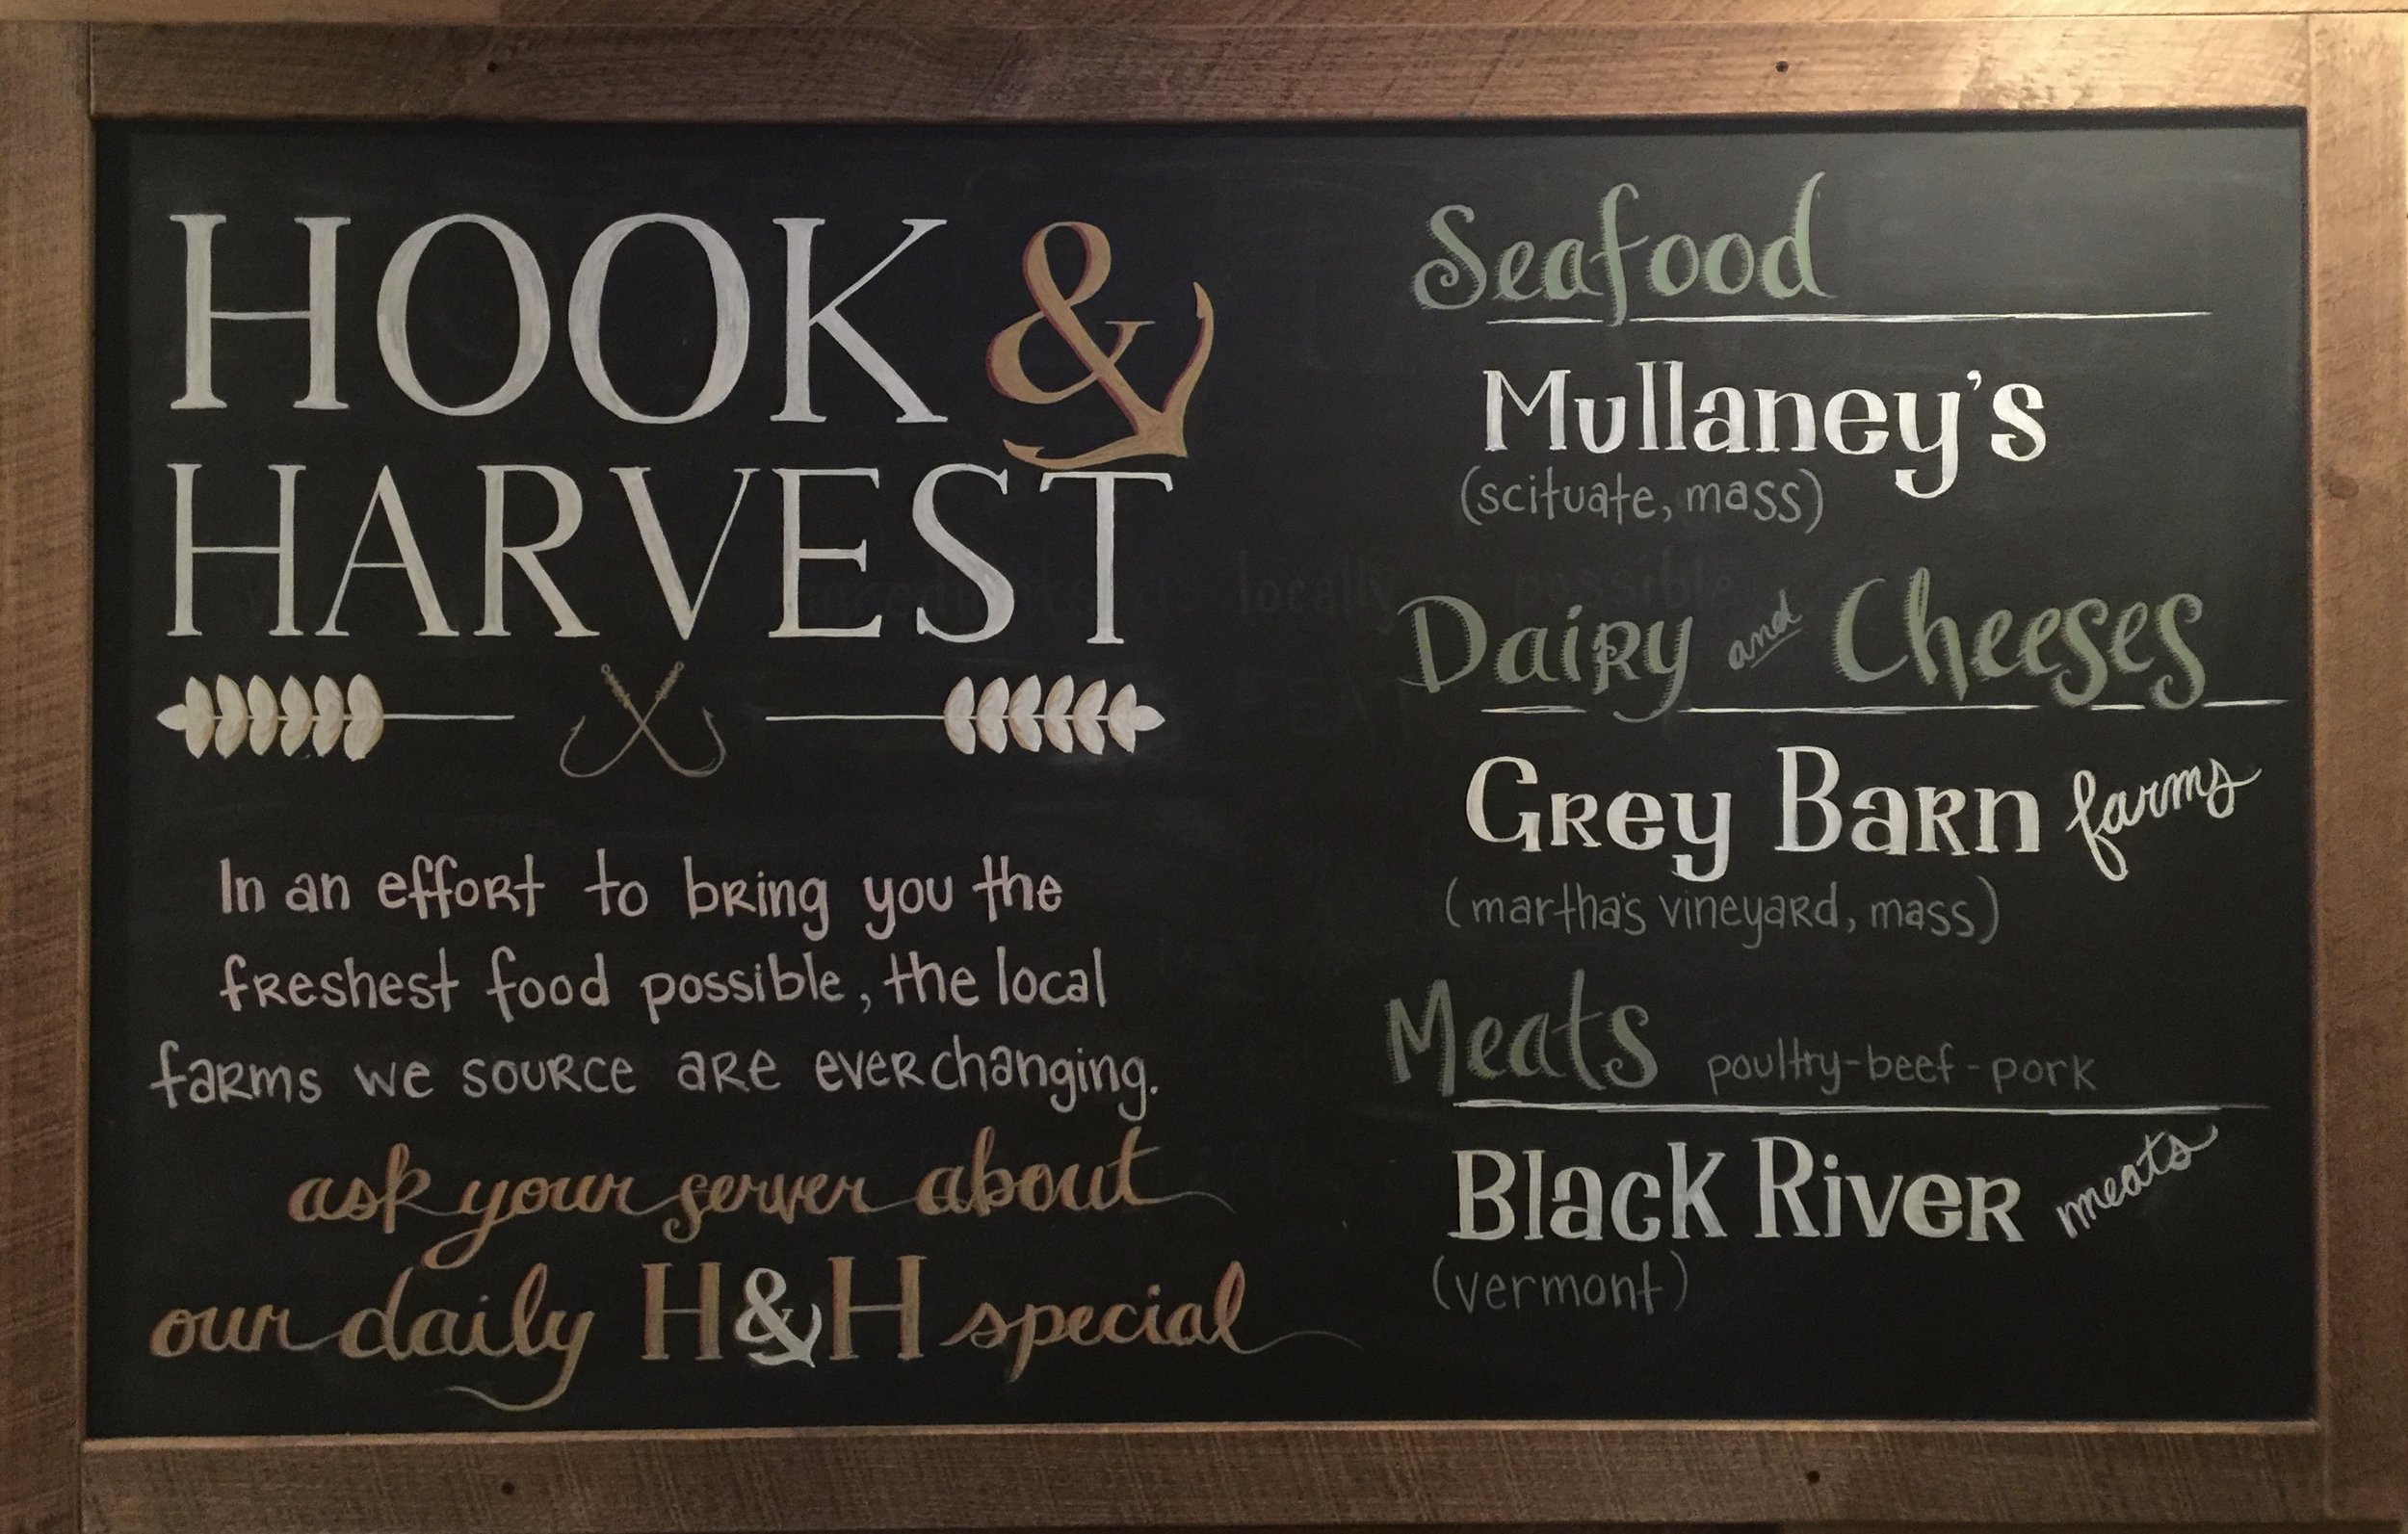 HOOK &
HARVEST
In an effort to bring you the
freshest food possible, the local
farms we source are ever changing.
ask your server about
our daily H&H special
Seafood
Mullaney's
(scituate, mass)
Dairy and Cheeses
Grey Barn farms
(martha's vineyard, mass)
Meats poultry-beef-pork
Black River meats
(vermont)